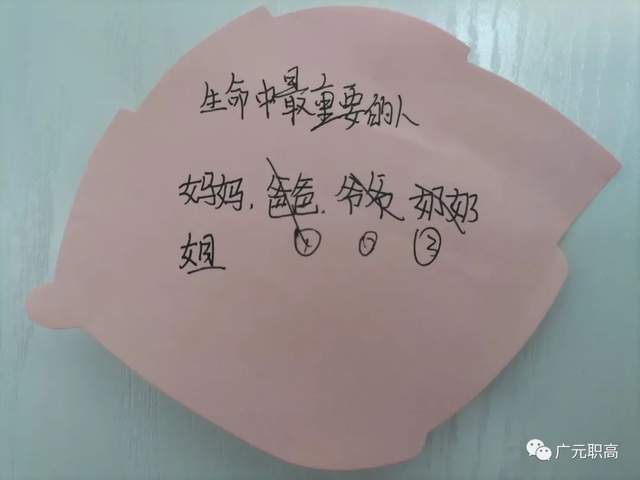 生命中最重要的人
妈妈，爸爸，爷爷 奶奶
④ ⑤ ③
姐
广元职高